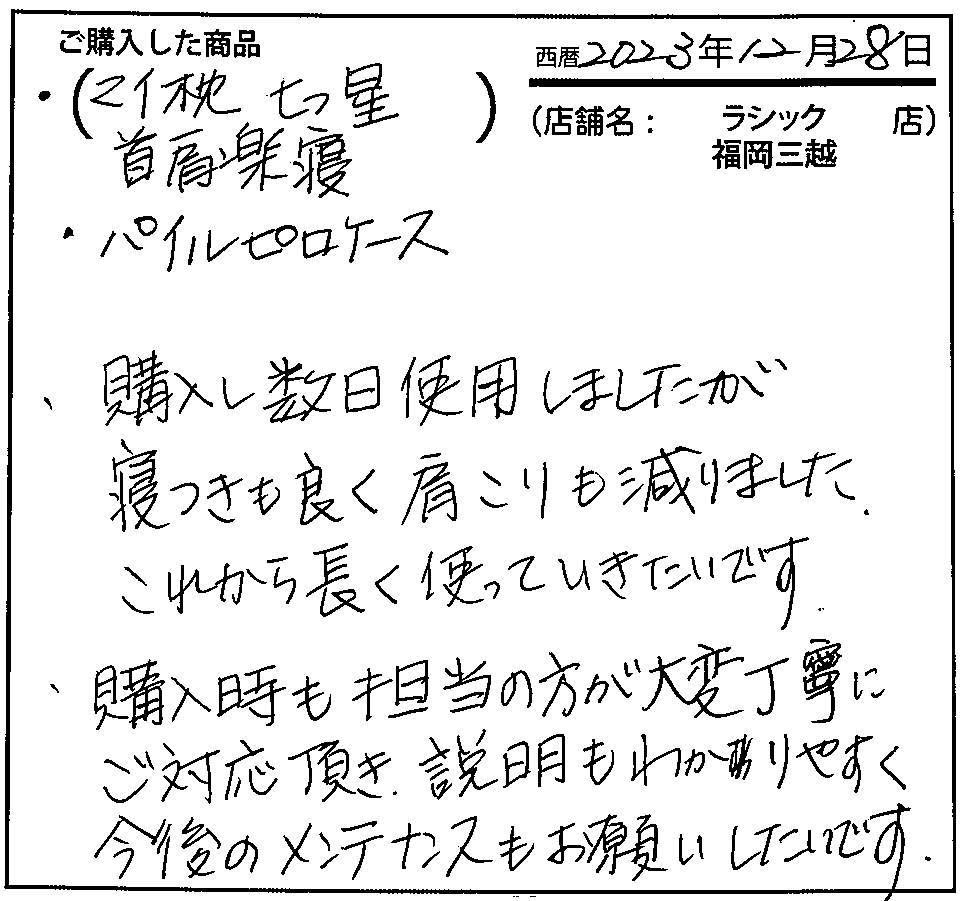 ご購入した商品
西暦2023年12月28日
・(マイ枕 七つ星 )
首肩楽寝
(店舗名: ラシック 店)
福岡三越
・パイルピロケース
、購入し数日使用しましたが
寝つきも良く肩こりも減りました.
これから長く使っていきたいです.
、購入時も担当の方が大変丁寧に
ご対応頂き.説明もわかりやすく
今後のメンテナンスもお願いしたいです.